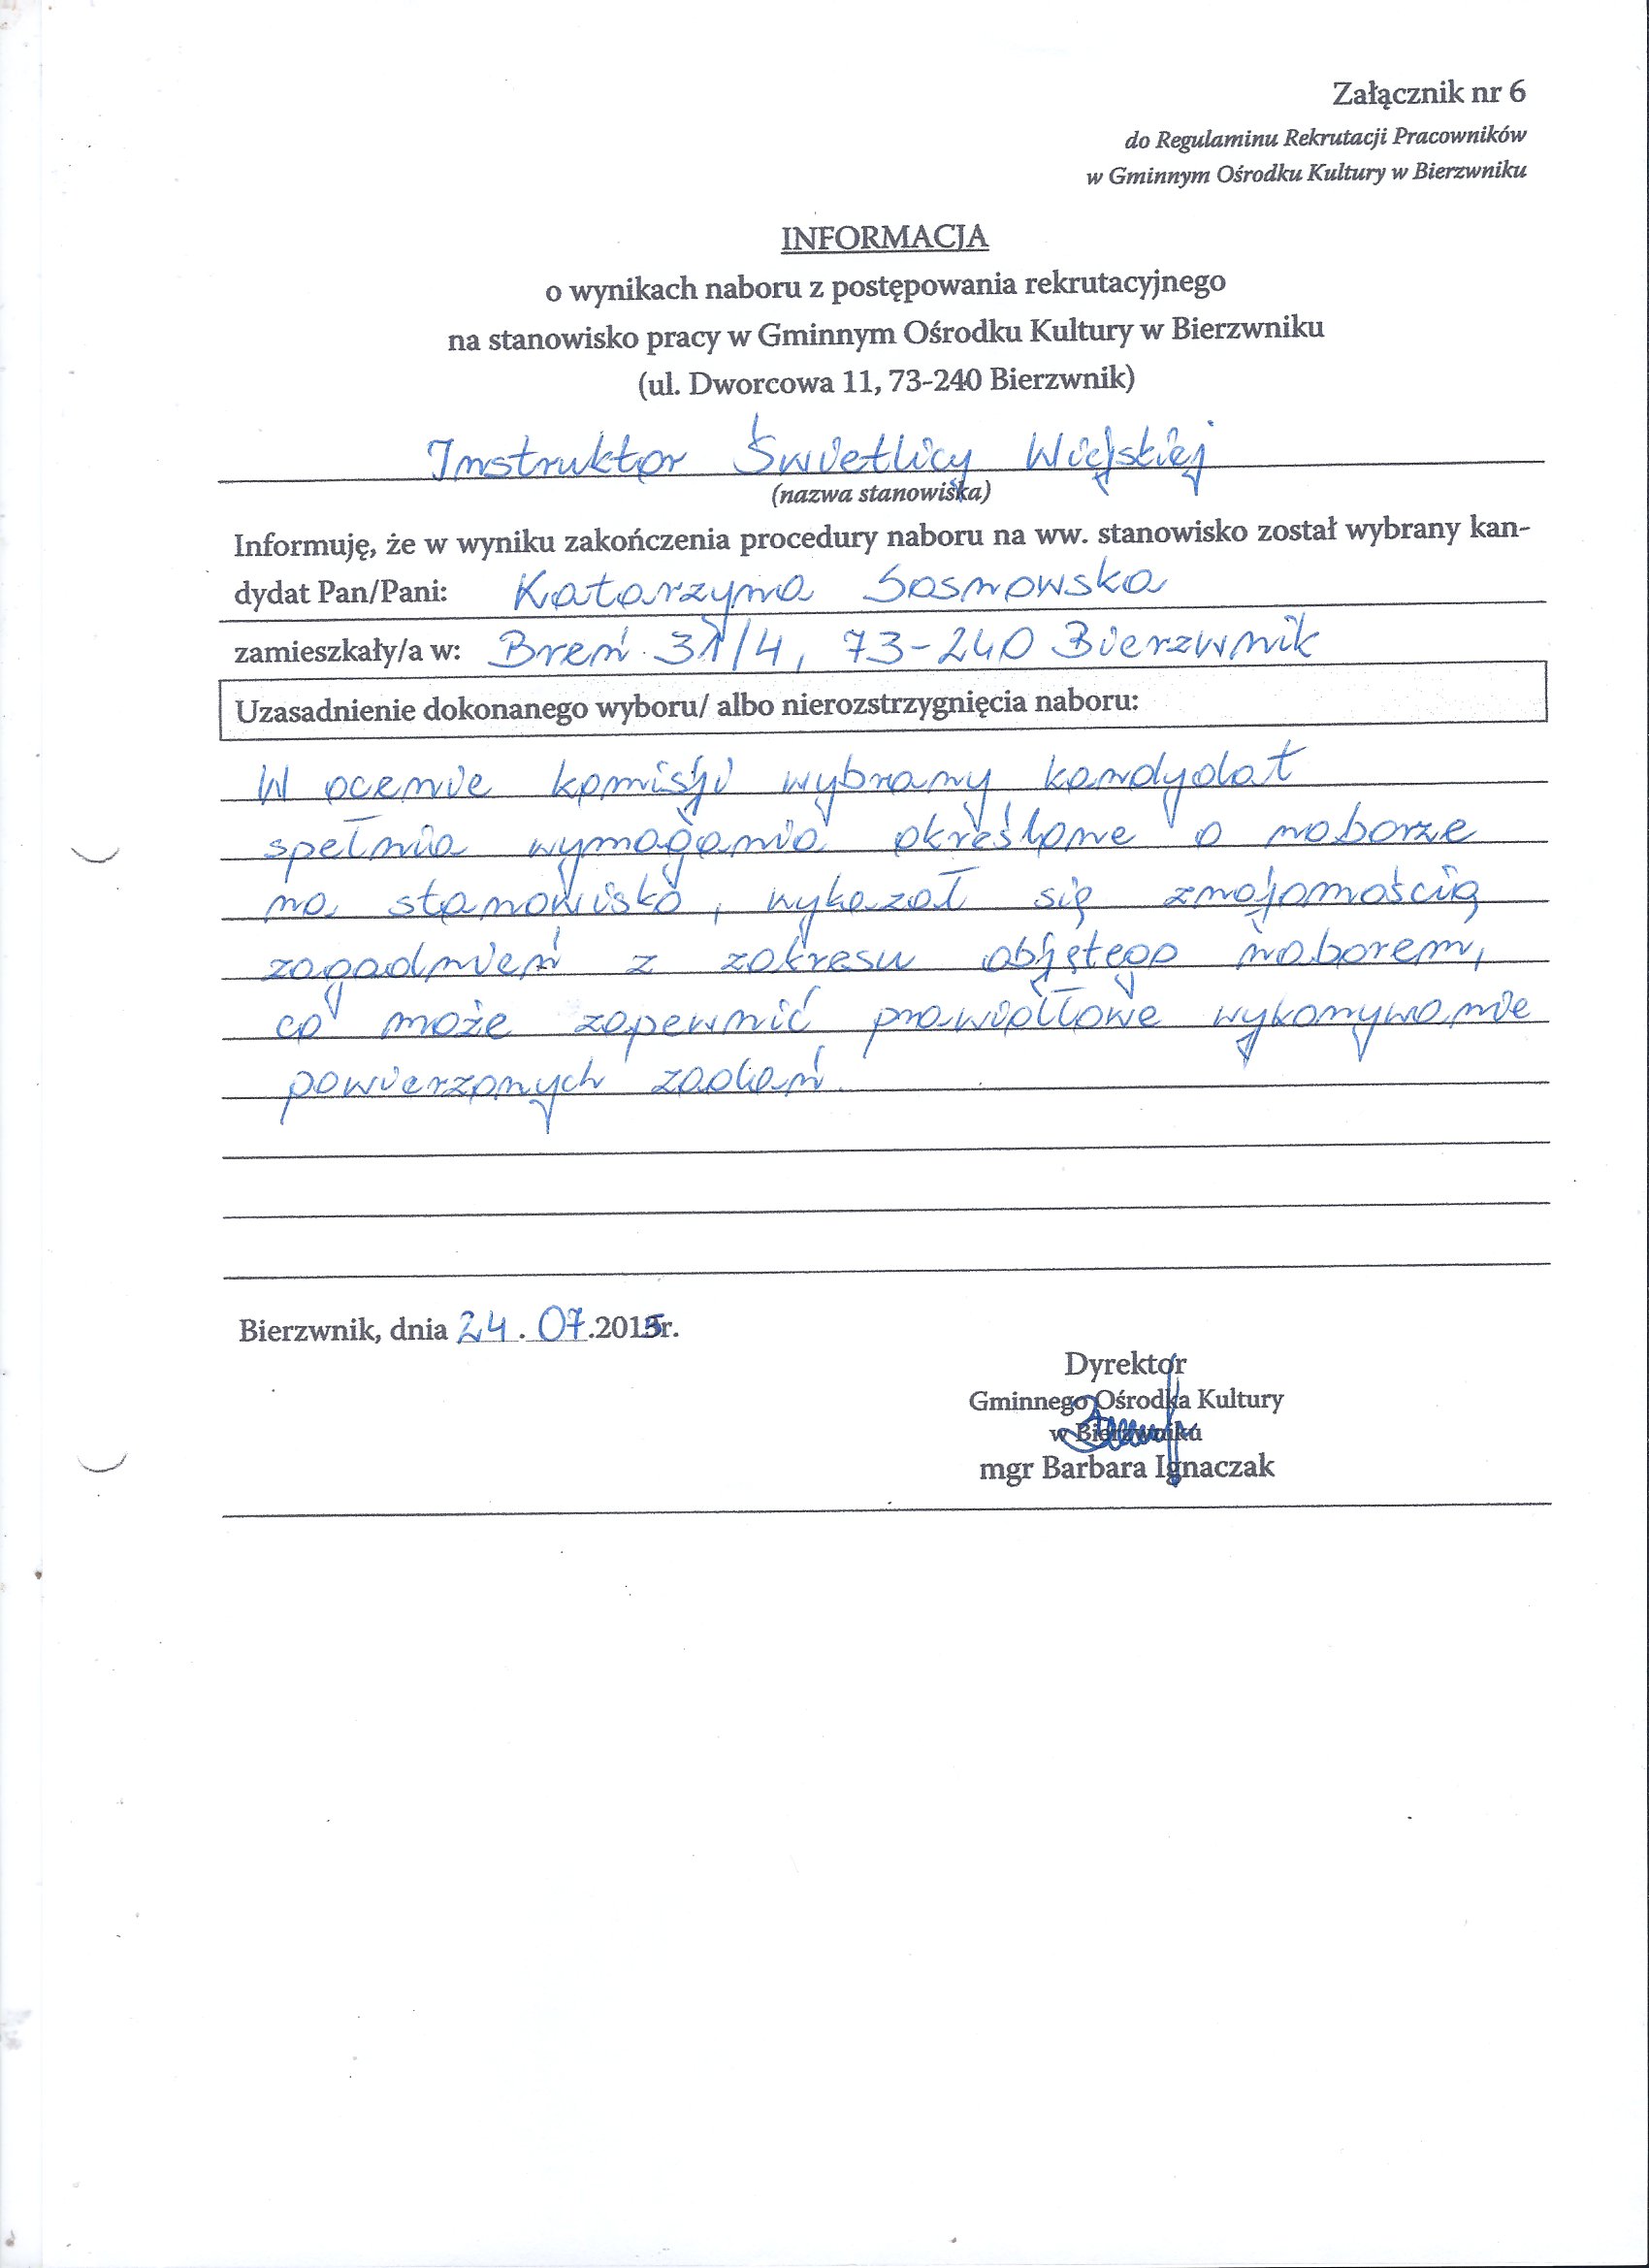 Załącznik nr 6
do Regulaminu Rekrutacji Pracowników
w Gminnym Ośrodku Kultury w Bierzwniku
INFORMACJA
o wynikach naboru z postępowania rekrutacyjnego
na stanowisko pracy w Gminnym Ośrodku Kultury w Bierzwniku
(ul. Dworcowa 11, 73-240 Bierzwnik)
Instruktor Świetlicy Wiejskiej
(nazwa stanowiska)
Informuję, że w wyniku zakończenia procedury naboru na ww. stanowisko został wybrany kan-
dydat Pan/Pani: Katarzyna Sosnowska
zamieszkały/a w: Breń 31/4, 73-240 Bierzwnik
Uzasadnienie dokonanego wyboru/ albo nierozstrzygnięcia naboru:
W ocenie komisji wybrany kandydat
spełnia wymagania określone o naborze
na stanowisko, wykazał się znajomością
zagadnień z zakresu objętego naborem,
co może zapewnić prawidłowe wykonywanie
powierzonych zadań.
Bierzwnik, dnia 24.07.2015r.
Dyrektor
Gminnego Ośrodka Kultury
w Bierzwniku
mgr Barbara Ignaczak